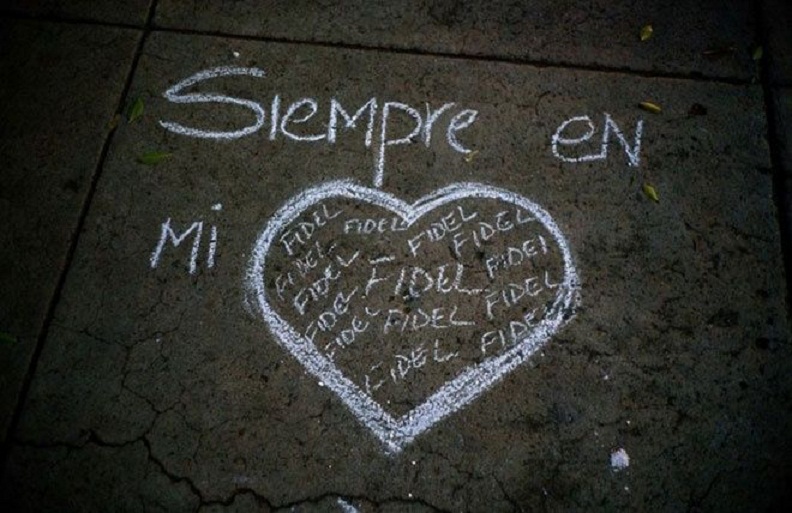 SIEMPRE EN
Mi
FIDEL FIDEL FIDEL FIDEL
FIDEL FIDEL FIDEL FIDEL
FIDEL FIDEL FIDEL
FIDEL FIDEL
FIDEL FIDEL